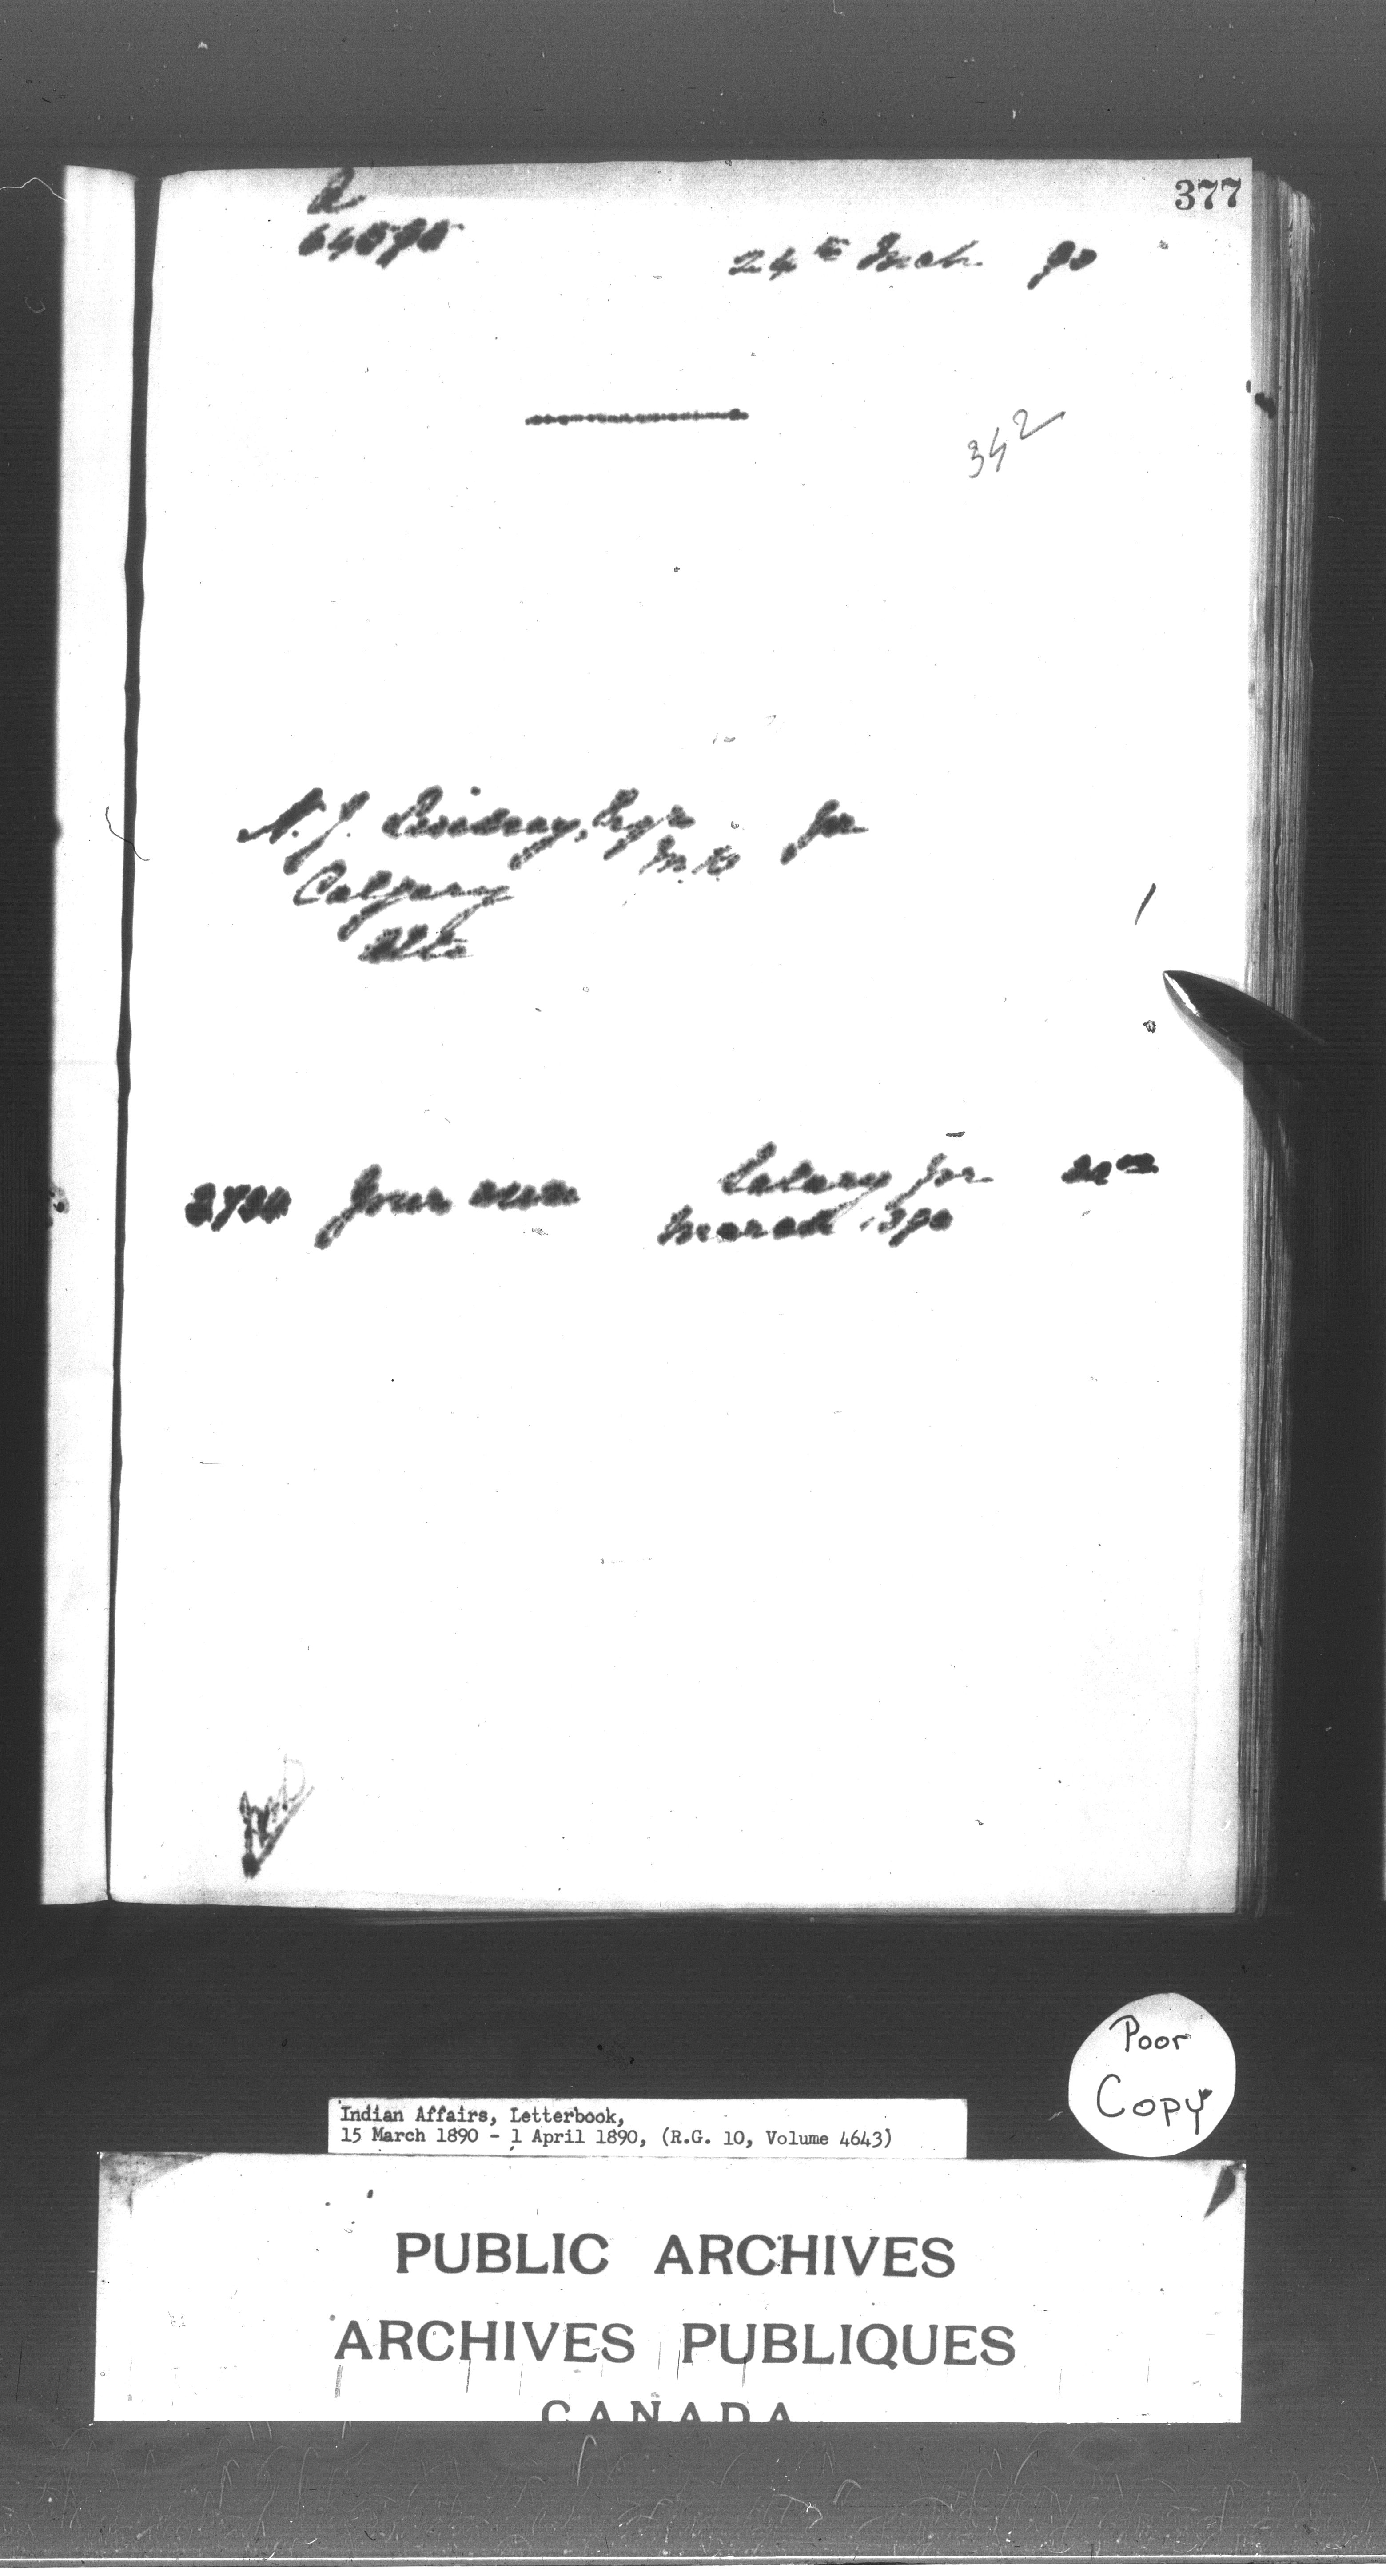 377
64595
24th Mch. 90
342
N. J. Lindsay, Esqr for
M.D.
Calgary
Alta
Your own Salary for
March 1890
Poor
Copy
Indian Affairs, Letterbook,
15 March 1890 - 1 April 1890, (R.G. 10, Volume 4643)
PUBLIC ARCHIVES
ARCHIVES PUBLIQUES
CANADA